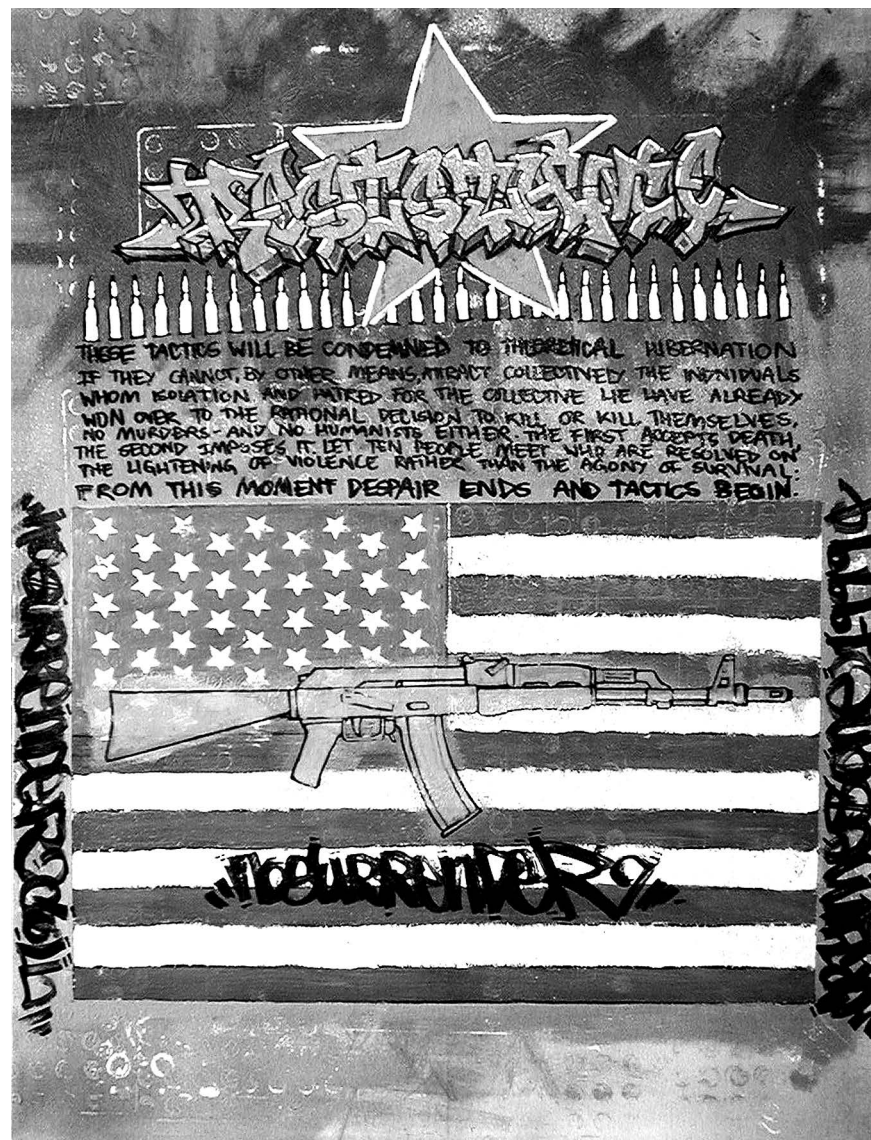 RESISTANCE
THESE TACTICS WILL BE CONDEMNED TO THEORETICAL HIBERNATION
IF THEY CANNOT, BY OTHER MEANS, ATTRACT COLLECTIVELY THE INDIVIDUALS
WHOM ISOLATION AND HATRED FOR THE COLLECTIVE LIE HAVE ALREADY
WON OVER TO THE RATIONAL DECISION TO KILL OR KILL THEMSELVES.
NO MURDERS - AND NO HUMANISTS EITHER. THE FIRST ACCEPTS DEATH,
THE SECOND IMPOSES IT. LET TEN PEOPLE MEET WHO ARE RESOLVED ON
THE LIGHTENING OF VIOLENCE RATHER THAN THE AGONY OF SURVIVAL:
FROM THIS MOMENT DESPAIR ENDS AND TACTICS BEGIN.
"NOSURRENDER"